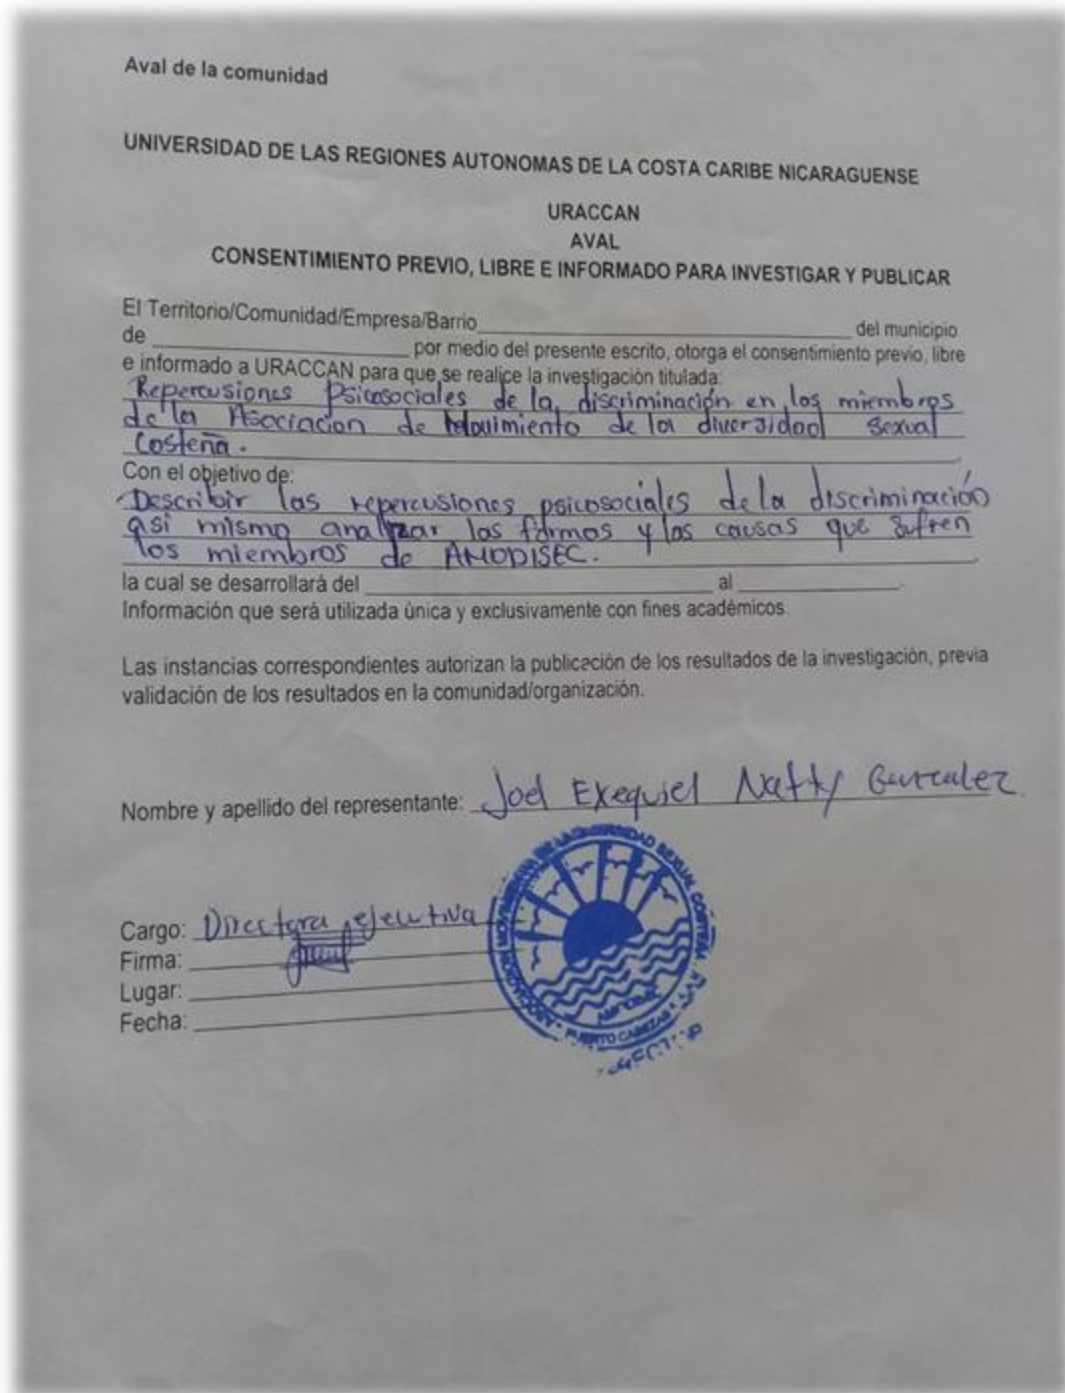 Aval de la comunidad
UNIVERSIDAD DE LAS REGIONES AUTONOMAS DE LA COSTA CARIBE NICARAGUENSE
URACCAN
AVAL
CONSENTIMIENTO PREVIO, LIBRE E INFORMADO PARA INVESTIGAR Y PUBLICAR
El Territorio/Comunidad/Empresa/Barrio del municipio
de por medio del presente escrito, otorga el consentimiento previo, libre
e informado a URACCAN para que se realice la investigación titulada:
Repercusiones Psicosociales de la discriminación en los miembros
de la Asociacion de Movimiento de la diversidad Sexual
Costeña.
Con el objetivo de:
Describir las repercusiones psicosociales de la discriminación
asi mismo analizar las formas y las causas que sufren
los miembros de AMODISEC.
la cual se desarrollará del al
Información que será utilizada única y exclusivamente con fines académicos.
Las instancias correspondientes autorizan la publicación de los resultados de la investigación, previa
validación de los resultados en la comunidad/organización.
Nombre y apellido del representante: Joel Exequiel Natty
Cargo: Directora ejecutiva
Firma:
Lugar:
Fecha:
SEXUAL COSTEÑA
PUERTO CABEZAS